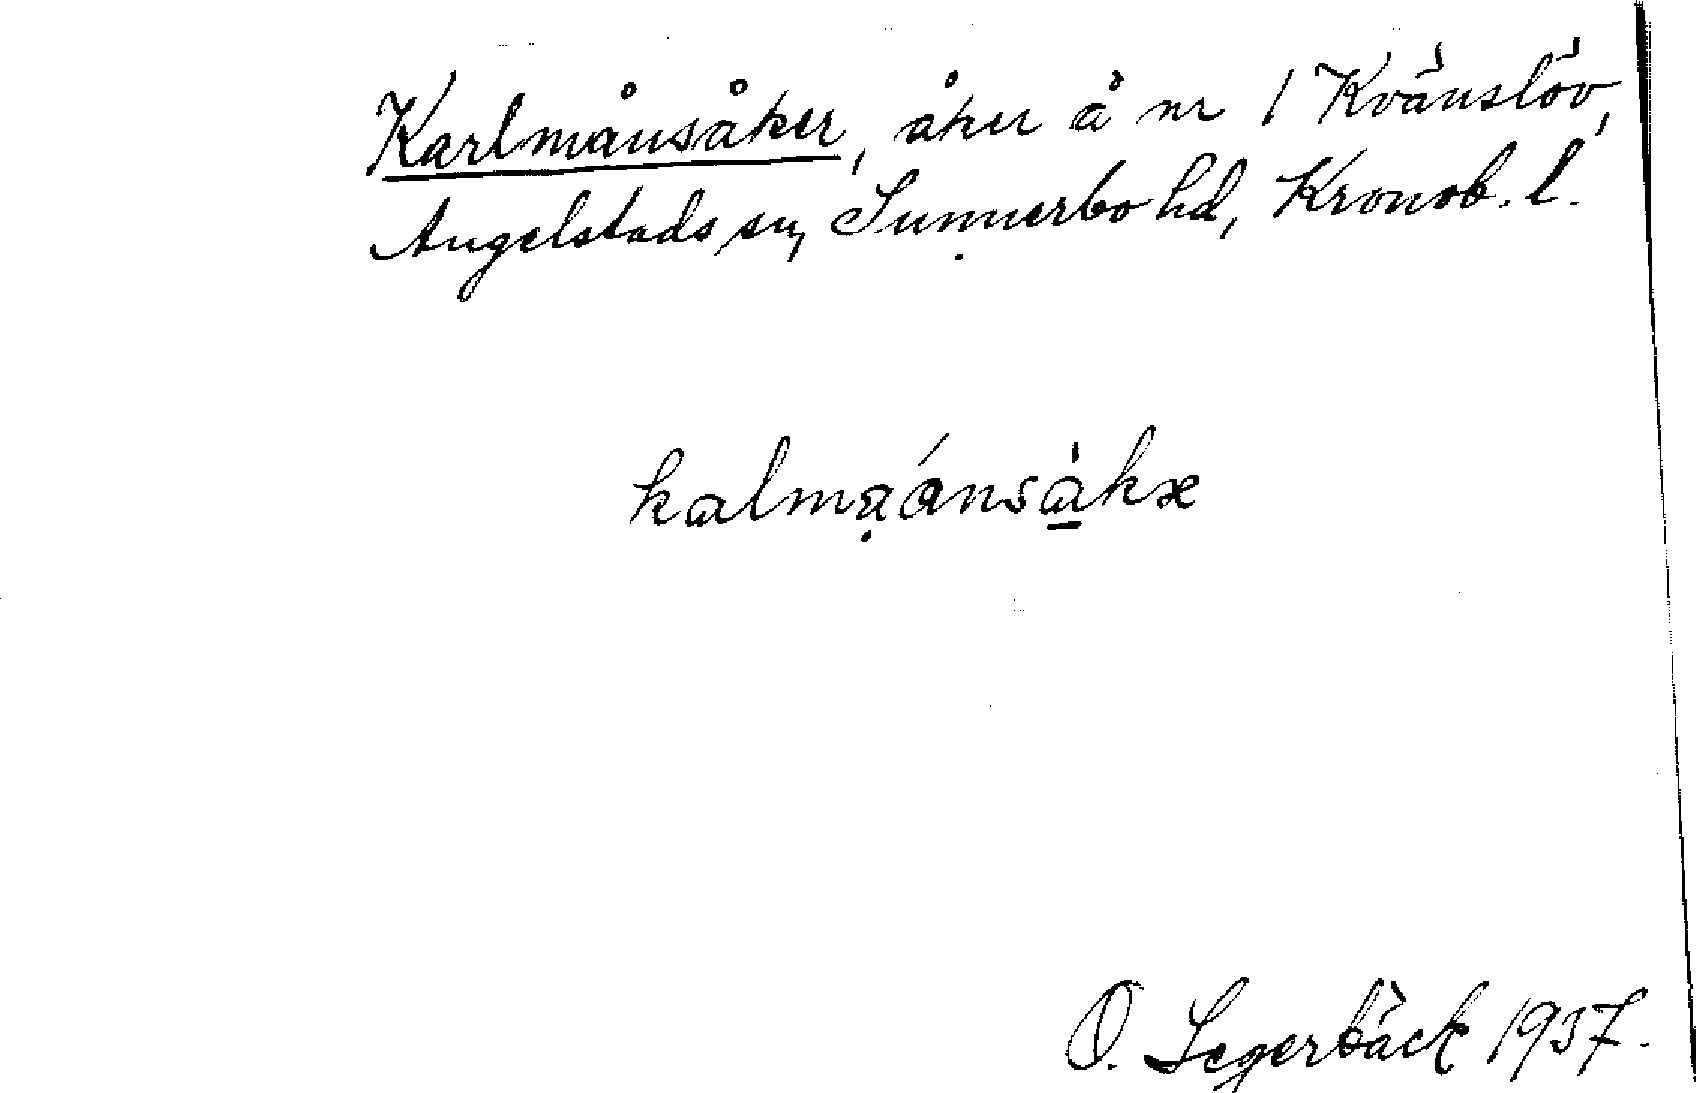 Karlmånsåker, åker å nr 1 Kvänslöv,
Angelstads sn, Sunnerbo hd, Kronob. l.
kalmạánsa̲̍kæ
O. Segerbäck 1937.